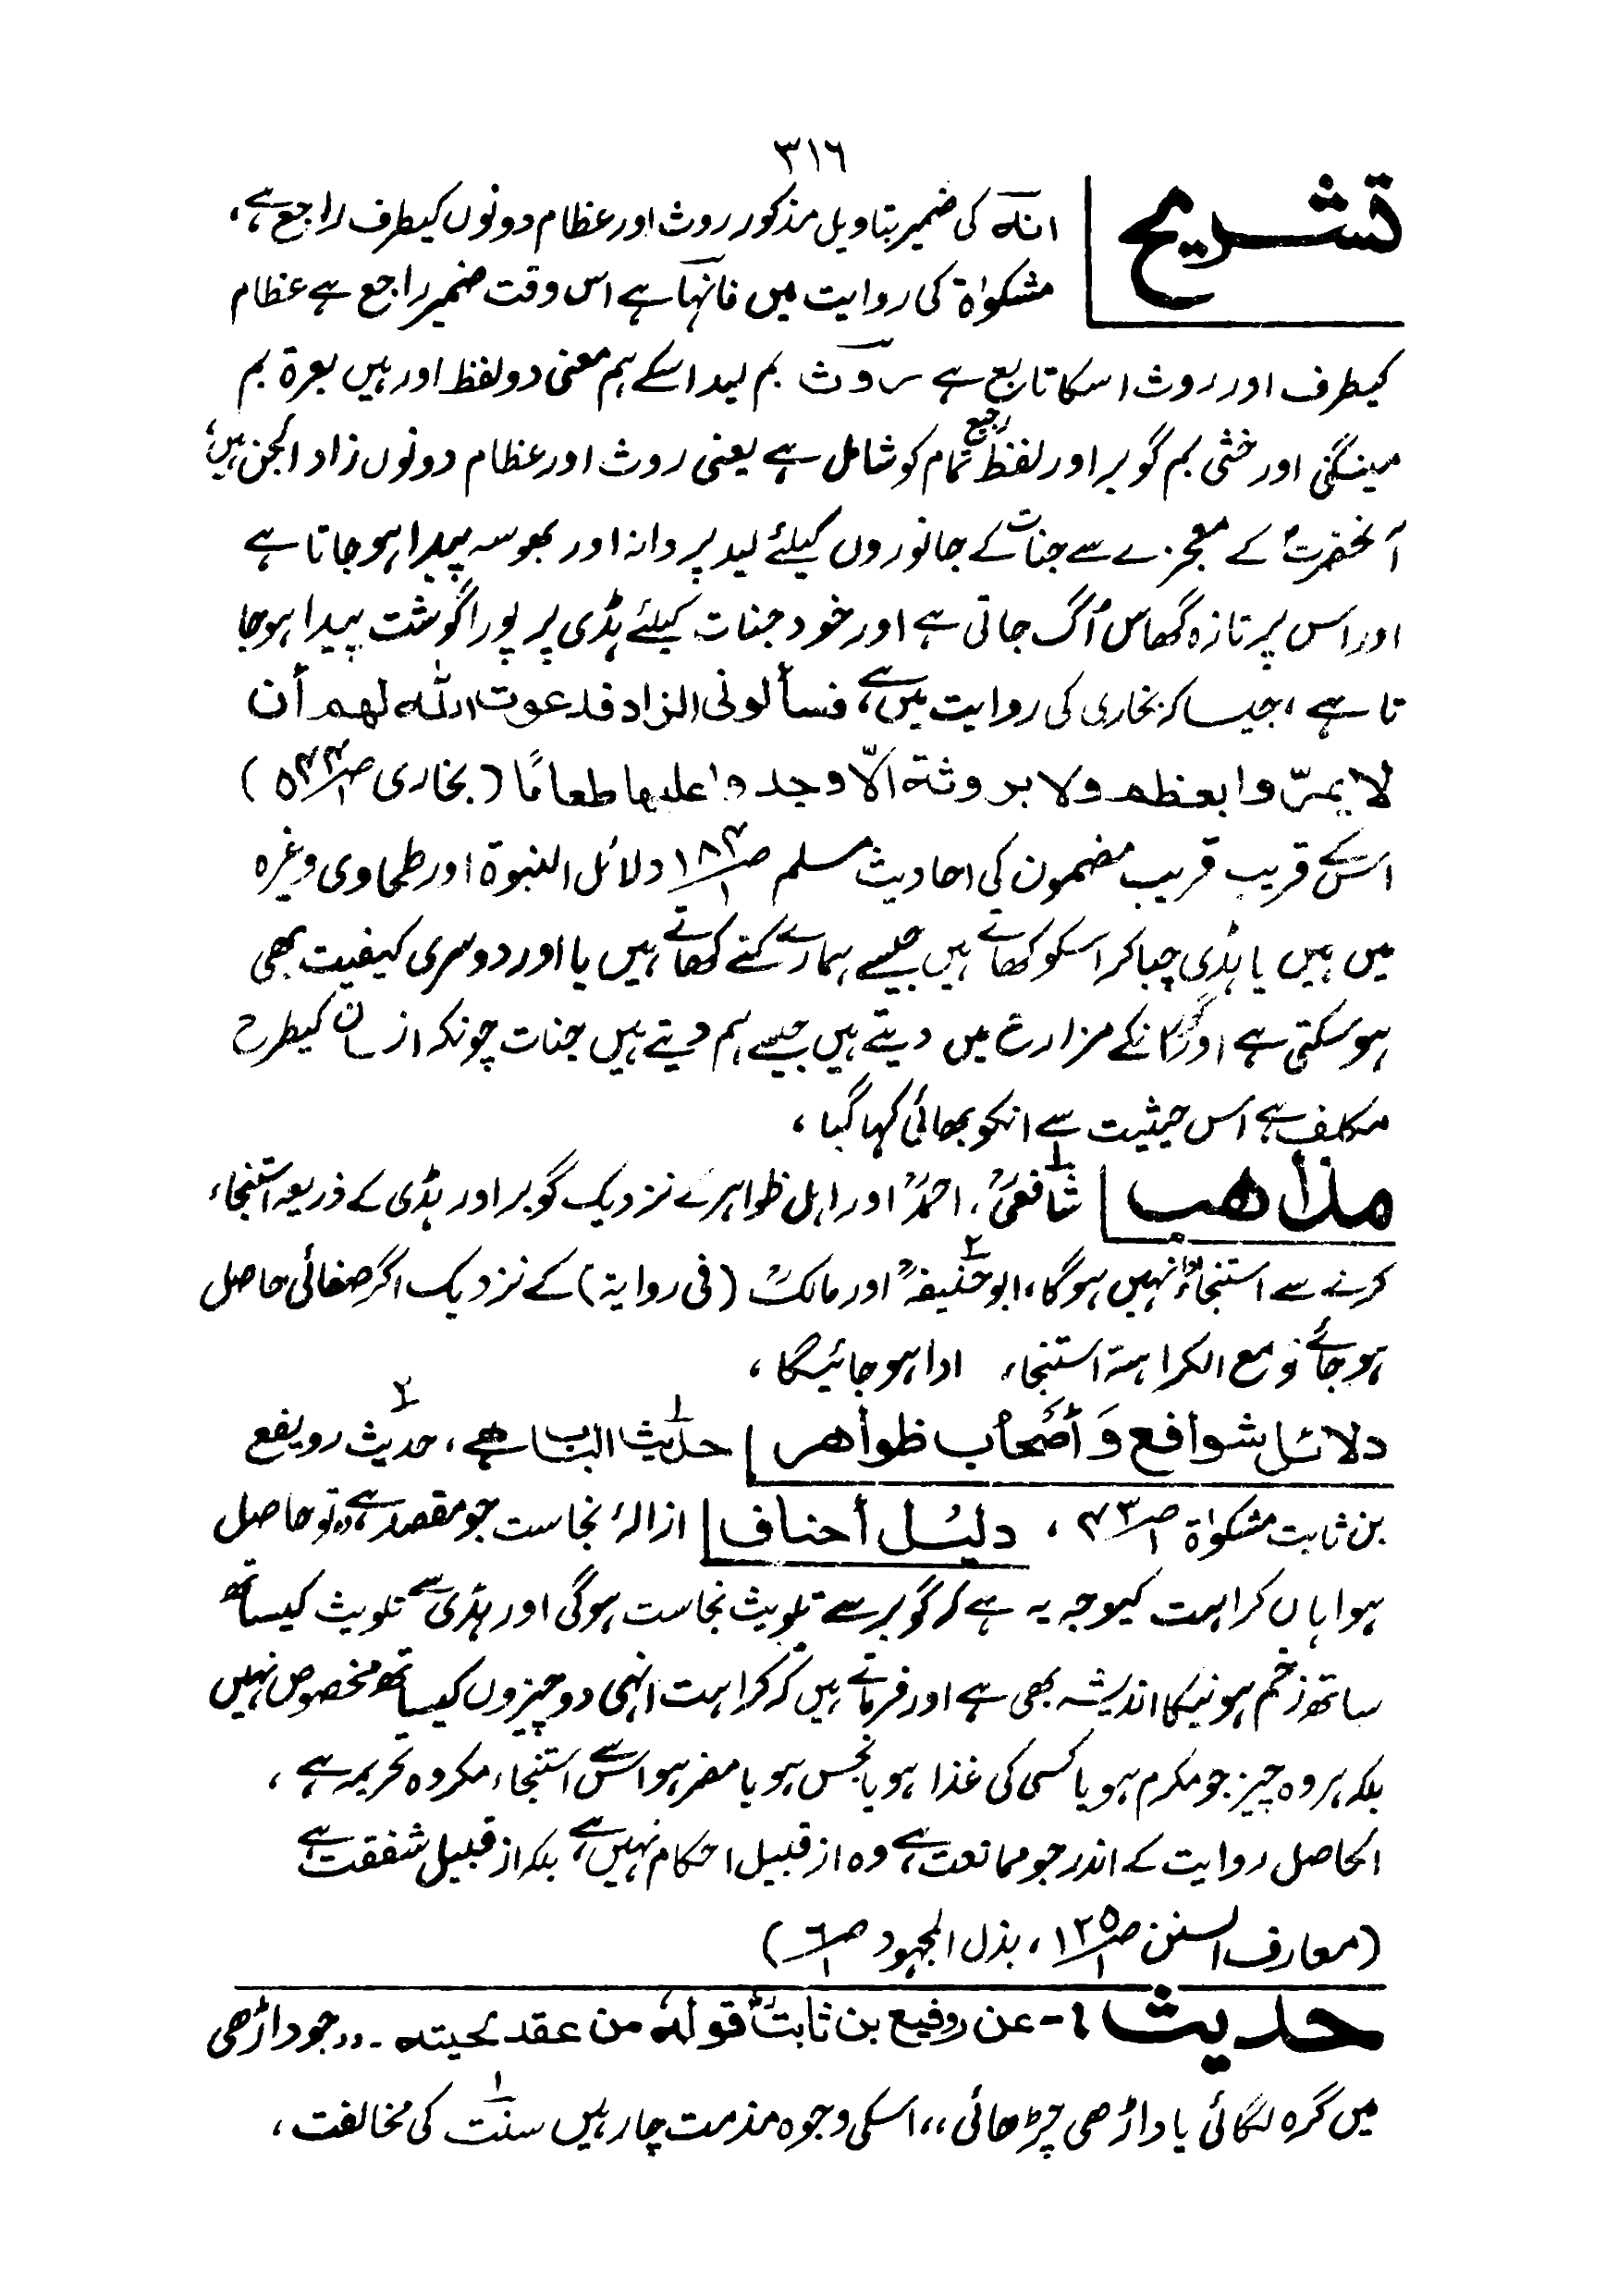 ٣١٦
تشریح
انہ کی ضمیر بتاویل مذکور روث اور عظام دونوں کیطرف راجع ہے،
مشکوٰۃ کی روایت میں فانہا ہے اس وقت ضمیر راجع ہے عظام
کیطرف اور روث اسکا تابع ہے روث بم لید اسکے ہم معنی دو لفظ اور ہیں بعرۃ بم
مینگنی اور خثی بم گوبر اور لفظ رجیع تمام کو شامل ہے یعنی روث اور عظام دونوں زاد الجن ہیں،
آنحضرتؐ کے معجزے سے جنات کے جانوروں کیلئے لید پر دانہ اور بھوسہ پیدا ہو جاتا ہے
اور اس پر تازہ گھاس اُگ جاتی ہے اور خود جنات کیلئے ہڈی پر پورا گوشت پیدا ہوجا
تا ہے، جیسا کہ بخاری کی روایت میں ہے، فسألونی الزاد فدعوت اللہ لھم أن
لا یمرّوا بعظم ولا بروثة الّا وجدوا علیها طعامًا (بخاری ص۵۴۴/۱)
اسکے قریب قریب مضمون کی احادیث مسلم ص۱۸۴/۱ دلائل النبوۃ اور طحاوی وغیرہ
میں ہیں یا ہڈی چبا کر اسکو کھاتے ہیں جیسے ہمارے کتے کھاتے ہیں یا اور دوسری کیفیت بھی
ہو سکتی ہے اور انکے مزارع میں دیتے ہیں جیسے ہم دیتے ہیں جنات چونکہ انسان کیطرح
مکلف ہے اس حیثیت سے انکو بھائی کہا گیا،
مذاهب
۱ شافعیؒ، احمدؒ اور اہل ظواہر کے نزدیک گوبر اور ہڈی کے ذریعہ استنجاء
کرنے سے استنجاء ادا نہیں ہوگا، ۲ ابوحنیفہؒ اور مالکؒ (فی روایۃ) کے نزدیک اگر صفائی حاصل
ہو جائے تو مع الکراہۃ استنجاء ادا ہو جائیگا،
دلائل شوافع وَ أصحاب ظواهر ۱ حدیث الباب ہے، ۲ حدیث رویفع
بن ثابت مشکوٰۃ ص۴۳/۱، دلیل أحناف ازالۂ نجاست جو مقصد ہے وہ تو حاصل
ہوا ہاں کراہت کیوجہ یہ ہے کہ گوبر سے تلویث نجاست ہوگی اور ہڈی سے تلویث کیساتھ
ساتھ زخم ہونیکا اندیشہ بھی ہے اور فرماتے ہیں کہ کراہت انہی دو چیزوں کیساتھ مخصوص نہیں
بلکہ ہر وہ چیز جو مکرم ہو یا کسی کی غذا ہو یا نجس ہو یا مضر ہو اس سے استنجاء مکروہ تحریمہ ہے،
الحاصل روایت کے اندر جو ممانعت ہے وہ از قبیل احکام نہیں ہے، بلکہ از قبیل شفقت ہے
(معارف السنن ص۱۲۵/۱، بذل المجہود ص۶/۱)
حدیث :- عن روفیع بن ثابتؓ قوله من عقد لحیته ۔ ,, جو داڑھی
میں گرہ لگائی یا داڑھی چڑھائی ،، اسکی وجوہ مذمت چار ہیں ۱ سنت کی مخالفت،